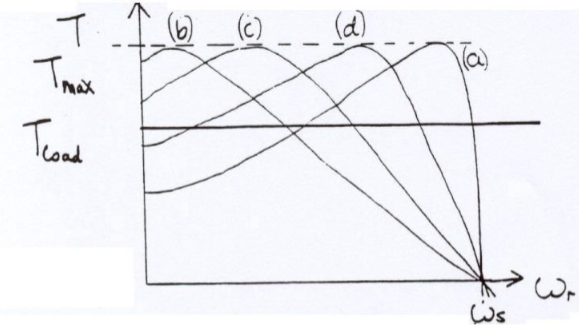 T (b) (c) (d)
Tmax (a)
Tload
ωr
ωs